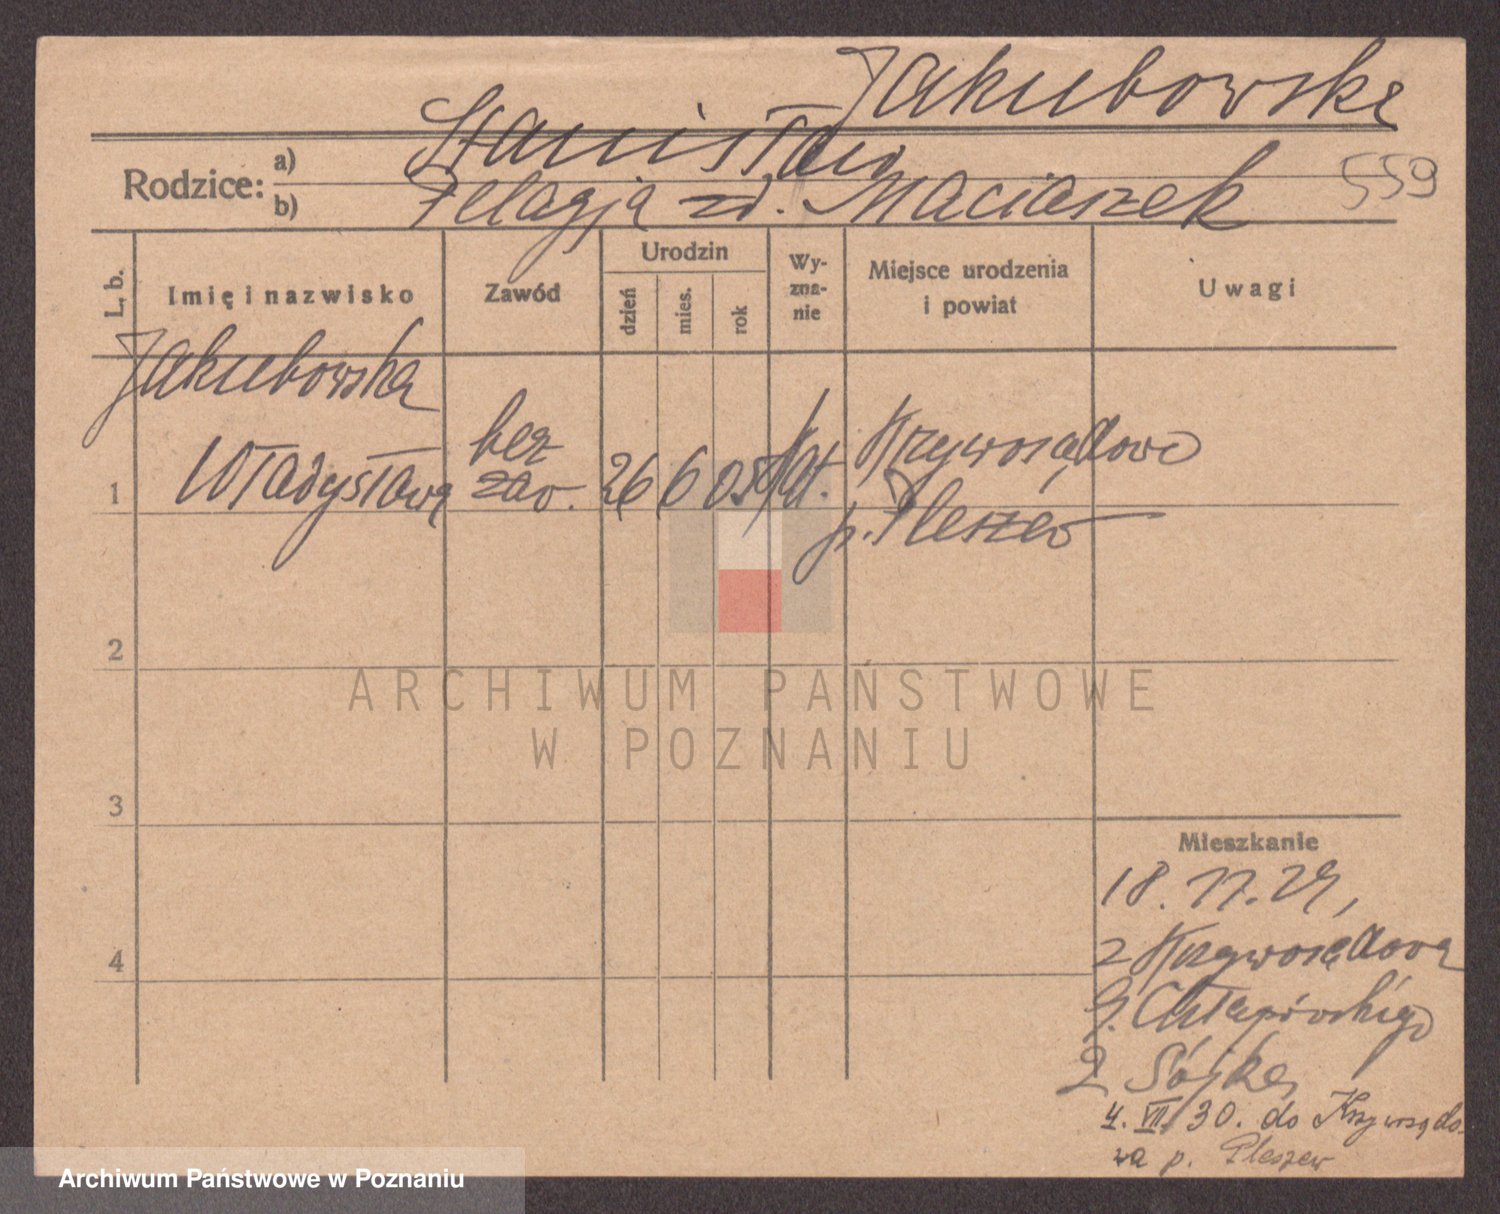 Jakubowska
Rodzice:
a) Stanisław
b) Pelagja zd. Maciaszek
559
L. b.
Imię i nazwisko
Zawód
Urodzin
dzień
mies.
rok
Wy-
zna-
nie
Miejsce urodzenia
i powiat
Uwagi
Jakubowska
1 Władysława
bez
zaw.
26 6 05 kat.
Krzywosądowo
p. Pleszew
2
ARCHIWUM PAŃSTWOWE
W POZNANIU
3
4
Mieszkanie
18. 11. 29,
z Krzywosądowa
G. Chłapowskiego
2 Sójka
4. VII 30. do Krzywosądo-
wa p. Pleszew
Archiwum Państwowe w Poznaniu